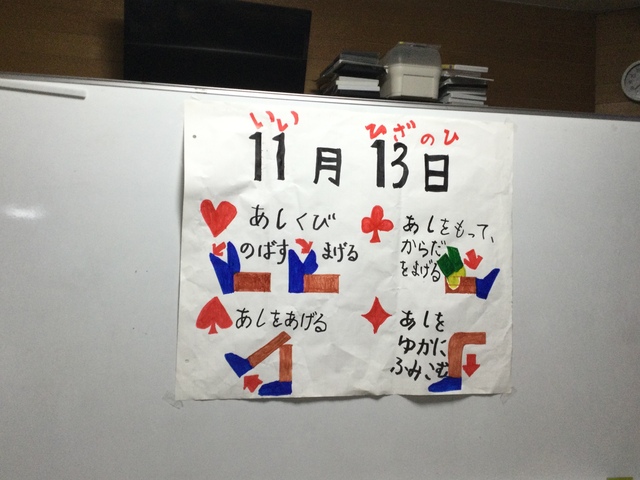 いい ひざのひ
11月 13日
あしくび
のばす まげる
あしをもって、
からだ
をまげる
あしをあげる
あしを
ゆかに
ふみこむ